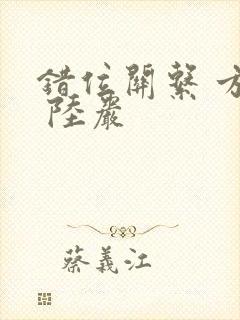 錯位關繫 方
陸嚴
蔡義江